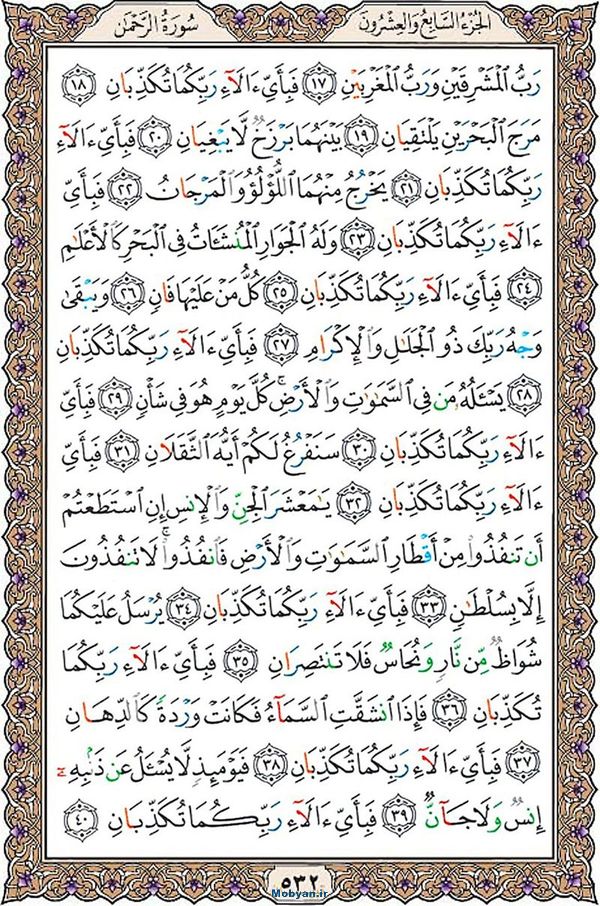 الجزء السابع والعشرون
سورة الرحمن
رَبُّ ٱلْمَشْرِقَيْنِ وَرَبُّ ٱلْمَغْرِبَيْنِ ﴿١٧﴾ فَبِأَىِّ ءَالَآءِ رَبِّكُمَا تُكَذِّبَانِ ﴿١٨﴾
مَرَجَ ٱلْبَحْرَيْنِ يَلْتَقِيَانِ ﴿١٩﴾ بَيْنَهُمَا بَرْزَخٌ لَّا يَبْغِيَانِ ﴿٢٠﴾ فَبِأَىِّ ءَالَآءِ
رَبِّكُمَا تُكَذِّبَانِ ﴿٢١﴾ يَخْرُجُ مِنْهُمَا ٱللُّؤْلُؤُ وَٱلْمَرْجَانُ ﴿٢٢﴾ فَبِأَىِّ
ءَالَآءِ رَبِّكُمَا تُكَذِّبَانِ ﴿٢٣﴾ وَلَهُ ٱلْجَوَارِ ٱلْمُنشَـَٔاتُ فِى ٱلْبَحْرِ كَٱلْأَعْلَـٰمِ
﴿٢٤﴾ فَبِأَىِّ ءَالَآءِ رَبِّكُمَا تُكَذِّبَانِ ﴿٢٥﴾ كُلُّ مَنْ عَلَيْهَا فَانٍ ﴿٢٦﴾ وَيَبْقَىٰ
وَجْهُ رَبِّكَ ذُو ٱلْجَلَـٰلِ وَٱلْإِكْرَامِ ﴿٢٧﴾ فَبِأَىِّ ءَالَآءِ رَبِّكُمَا تُكَذِّبَانِ
﴿٢٨﴾ يَسْـَٔلُهُۥ مَن فِى ٱلسَّمَـٰوَٰتِ وَٱلْأَرْضِ ۚ كُلَّ يَوْمٍ هُوَ فِى شَأْنٍ ﴿٢٩﴾ فَبِأَىِّ
ءَالَآءِ رَبِّكُمَا تُكَذِّبَانِ ﴿٣٠﴾ سَنَفْرُغُ لَكُمْ أَيُّهَ ٱلثَّقَلَانِ ﴿٣١﴾ فَبِأَىِّ
ءَالَآءِ رَبِّكُمَا تُكَذِّبَانِ ﴿٣٢﴾ يَـٰمَعْشَرَ ٱلْجِنِّ وَٱلْإِنسِ إِنِ ٱسْتَطَعْتُمْ
أَن تَنفُذُوا۟ مِنْ أَقْطَارِ ٱلسَّمَـٰوَٰتِ وَٱلْأَرْضِ فَٱنفُذُوا۟ ۚ لَا تَنفُذُونَ
إِلَّا بِسُلْطَـٰنٍ ﴿٣٣﴾ فَبِأَىِّ ءَالَآءِ رَبِّكُمَا تُكَذِّبَانِ ﴿٣٤﴾ يُرْسَلُ عَلَيْكُمَا
شُوَاظٌ مِّن نَّارٍ وَنُحَاسٌ فَلَا تَنتَصِرَانِ ﴿٣٥﴾ فَبِأَىِّ ءَالَآءِ رَبِّكُمَا
تُكَذِّبَانِ ﴿٣٦﴾ فَإِذَا ٱنشَقَّتِ ٱلسَّمَآءُ فَكَانَتْ وَرْدَةً كَٱلدِّهَانِ
﴿٣٧﴾ فَبِأَىِّ ءَالَآءِ رَبِّكُمَا تُكَذِّبَانِ ﴿٣٨﴾ فَيَوْمَئِذٍ لَّا يُسْـَٔلُ عَن ذَنۢبِهِۦٓ
إِنسٌ وَلَا جَآنٌّ ﴿٣٩﴾ فَبِأَىِّ ءَالَآءِ رَبِّكُمَا تُكَذِّبَانِ ﴿٤٠﴾
٥٣٢
Mobyan.ir